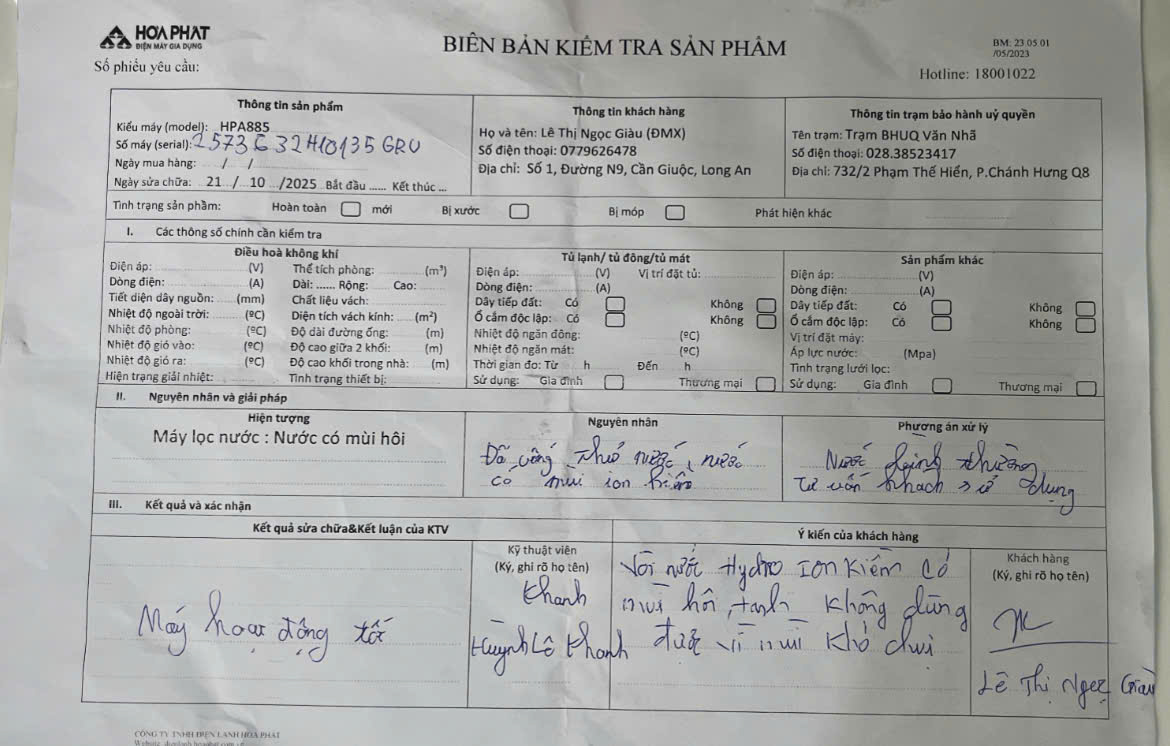 HÒA PHÁT
ĐIỆN MÁY GIA DỤNG
BIÊN BẢN KIỂM TRA SẢN PHẨM
BM: 23 05 01
/05/2023
Số phiếu yêu cầu:
Hotline: 18001022
Thông tin sản phẩm
Kiểu máy (model): HPA885
Số máy (serial):
Ngày mua hàng: / /
Ngày sửa chữa: 21 / 10 /2025 Bắt đầu ...... Kết thúc ...
Thông tin khách hàng
Họ và tên: Lê Thị Ngọc Giàu (ĐMX)
Số điện thoại: 0779626478
Địa chỉ: Số 1, Đường N9, Cần Giuộc, Long An
Thông tin trạm bảo hành uỷ quyền
Tên trạm: Trạm BHUQ Văn Nhã
Số điện thoại: 028.38523417
Địa chỉ: 732/2 Phạm Thế Hiển, P.Chánh Hưng Q8
Tình trạng sản phẩm: Hoàn toàn mới Bị xước Bị móp Phát hiện khác
I. Các thông số chính cần kiểm tra
Điều hoà không khí
Điện áp: (V) Thể tích phòng: (m³)
Dòng điện: (A) Dài: ...... Rộng: Cao:
Tiết diện dây nguồn: (mm) Chất liệu vách:
Nhiệt độ ngoài trời: (ºC) Diện tích vách kính: (m²)
Nhiệt độ phòng: (ºC) Độ dài đường ống: (m)
Nhiệt độ gió vào: (ºC) Độ cao giữa 2 khối: (m)
Nhiệt độ gió ra: (ºC) Độ cao khối trong nhà: (m)
Hiện trạng giải nhiệt: Tình trạng thiết bị:
Tủ lạnh/ tủ đông/tủ mát
Điện áp: (V) Vị trí đặt tủ:
Dòng điện: (A)
Dây tiếp đất: Có Không
Ổ cắm độc lập: Có Không
Nhiệt độ ngăn đông: (ºC)
Nhiệt độ ngăn mát: (ºC)
Thời gian đo: Từ h Đến h
Sử dụng: Gia đình Thương mại
Sản phẩm khác
Điện áp: (V)
Dòng điện: (A)
Dây tiếp đất: Có Không
Ổ cắm độc lập: Có Không
Vị trí đặt máy:
Áp lực nước: (Mpa)
Tình trạng lưới lọc:
Sử dụng: Gia đình Thương mại
II. Nguyên nhân và giải pháp
Hiện tượng
Máy lọc nước : Nước có mùi hôi
Nguyên nhân
Đã uống thử nước, nước
có mùi ion kiềm
Phương án xử lý
Nước bình thường
Tư vấn khách sử dụng
III. Kết quả và xác nhận
Kết quả sửa chữa&Kết luận của KTV
Máy hoạt động tốt
Kỹ thuật viên
(Ký, ghi rõ họ tên)
Khanh
Huỳnh Lê Khanh
Ý kiến của khách hàng
Vòi nước Hydro ION Kiềm Có
mùi hôi, tanh không dùng
được vì mùi khó chịu
Khách hàng
(Ký, ghi rõ họ tên)
Lê Thị Ngọc Giàu
CÔNG TY TNHH ĐIỆN LẠNH HÒA PHÁT